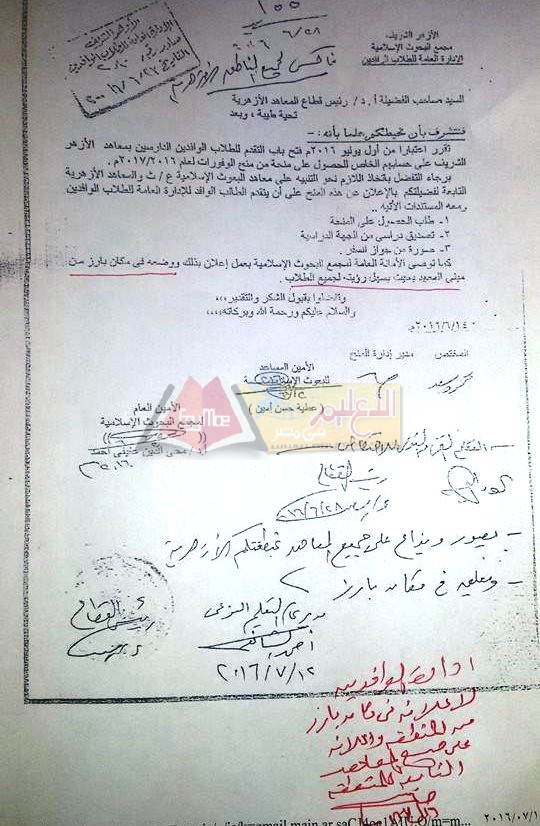 ١٥٥
٦/٢٨
فاكس لجميع المناطق الأزهرية
الأزهر الشريف
مجمع البحوث الإسلامية
الإدارة العامة للطلاب الوافدين
السيد صاحب الفضيلة أ.د/ رئيس قطاع المعاهد الأزهرية
تحية طيبة ، وبعد
فنتشرف بأن نحيطكم علما بأنه :-
تقرر اعتبارا من أول يوليو ٢٠١٦م فتح باب التقدم للطلاب الوافدين الدارسين بمعاهد الأزهر
الشريف على حسابهم الخاص للحصول على منحة من منح الوفورات لعام ٢٠١٧/٢٠١٦م
برجاء التفضل باتخاذ اللازم نحو التنبيه على معاهد البحوث الإسلامية ع / ث والمعاهد الأزهرية
التابعة لفضيلتكم بالإعلان عن هذه المنح على أن يتقدم الطالب الوافد للإدارة العامة للطلاب الوافدين
ومعه المستندات الآتية :-
١- طلب الحصول على المنحة
٢- تصديق دراسى من الجهة الدراسية
٣- صورة من جواز السفر
كما توصى الأمانة العامة لمجمع البحوث الإسلامية بعمل إعلان بذلك ووضعه فى مكان بارز من
مبنى المعهد بحيث يسهل رؤيته لجميع الطلاب.
وتفضلوا بقبول الشكر والتقدير،،،
والسلام عليكم ورحمة الله وبركاته،،،
٢٠١٦/٦/١٤م
المختص
مدير إدارة المنح
الأمين المساعد
للبحوث الإسلامية
(عطية حسن أمين)
الأمين العام
لمجمع البحوث الإسلامية
أ.د/ محى الدين عفيفى أحمد
التعليم
فى مصر
رئيس القطاع
٢٠١٦/٦/٢٨
- يصور ويذاع على جميع المعاهد بمنطقتكم الأزهرية
- ويعلق فى مكان بارز
رئيس القطاع
مدير عام التعليم النوعى
٢٠١٦/٧/١٢
إدارة الوافدين
لإعلانه فى مكان بارز
من المنطقة وإعلانه
على جميع المعاهد
التابعة للمنطقة